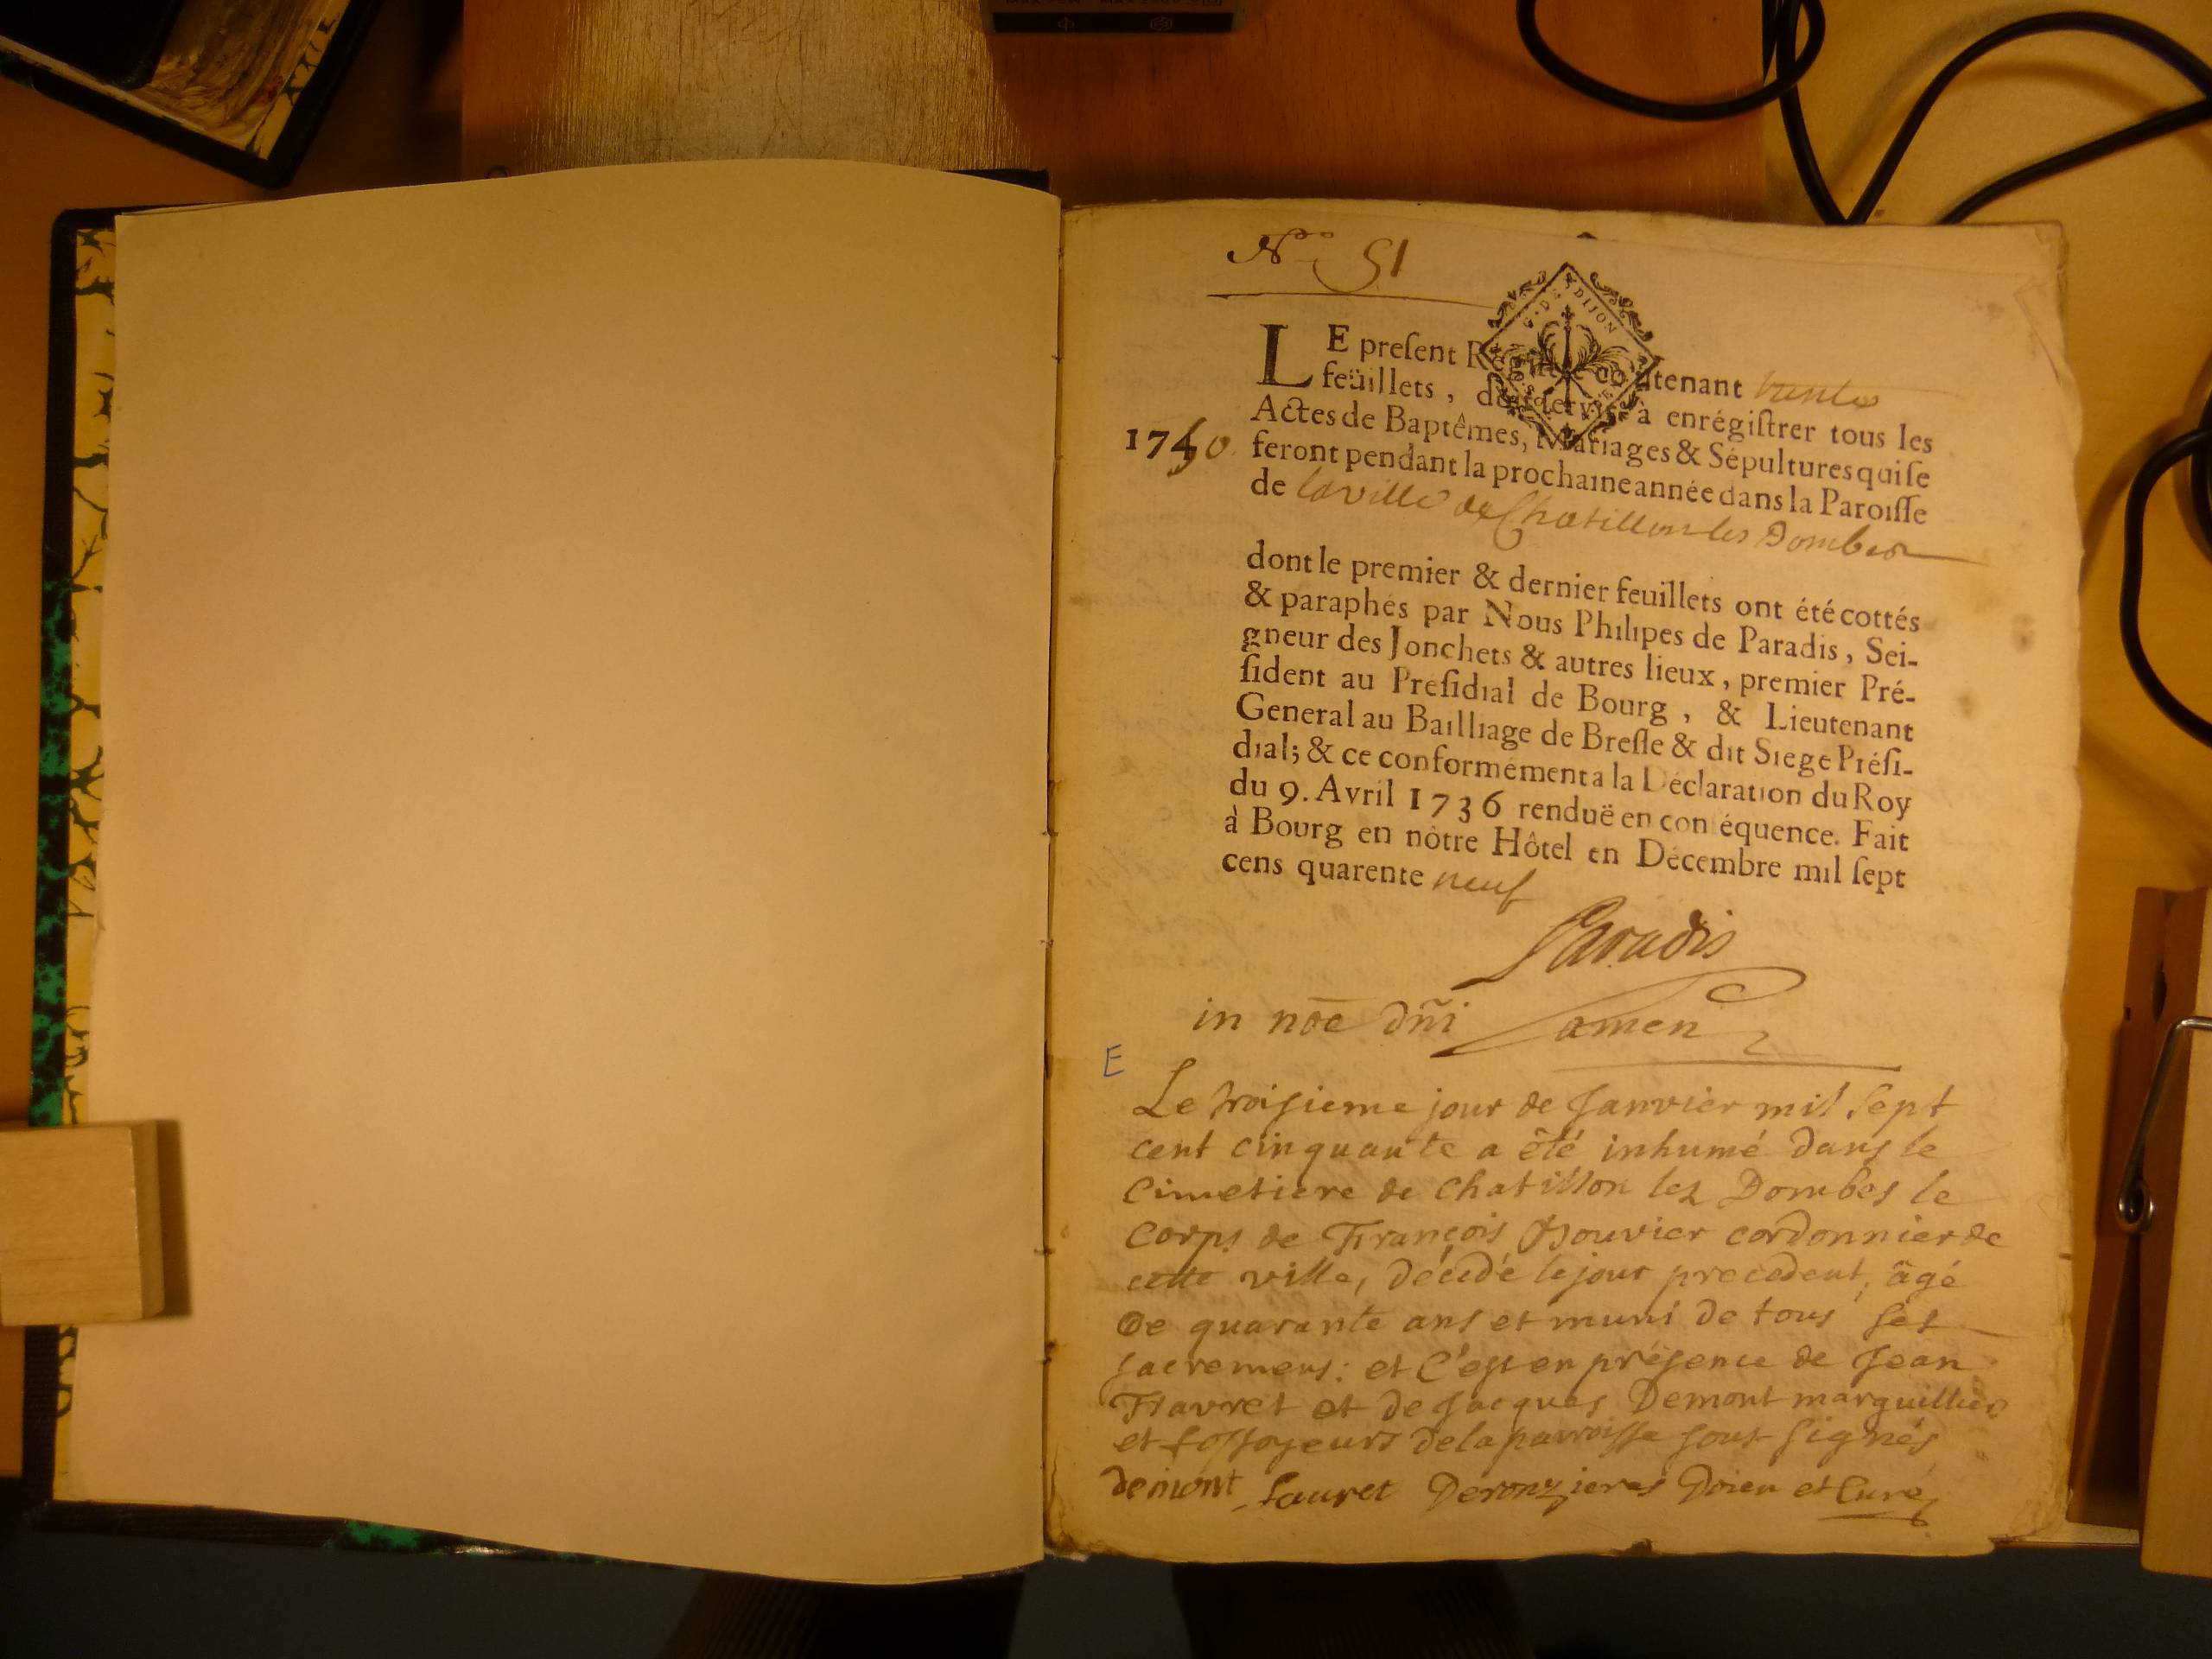 No 51
G. DE DIJON
LE preſent Regiſtre contenant
feüillets, destiné à ſervir à enrégiſtrer tous les
Actes de Baptêmes, Mariages & Sépultures qui ſe
1750. feront pendant la prochaine année dans la Paroiſſe
de la ville de Chatillon les Dombes
dont le premier & dernier feuillets ont été cottés
& paraphés par Nous Philipes de Paradis, Sei-
gneur des Jonchets & autres lieux, premier Pré-
ſident au Preſidial de Bourg, & Lieutenant
General au Bailliage de Breſſe & dit Siege Préſi-
dial; & ce conformément a la Déclaration du Roy
du 9. Avril 1736 renduë en conſéquence. Fait
à Bourg en nôtre Hôtel en Décembre mil ſept
cens quarente neuf
Paradis
in nōe dñi amen
E
Le troisieme jour de Janvier mil sept
cent cinquante a été inhumé dans le
Cimetiere de Chatillon lez Dombes le
Corps de François Bouvier cordonnier de
cette ville, décédé le jour precedent, âgé
de quarante ans et muni de tous ses
sacremens: et c'est en présence de Jean
Favret et de Jacques Demont marguilliers
et fossoyeurs de la parroisse sous signés
demont fauret Deronzieres Doien et Curé